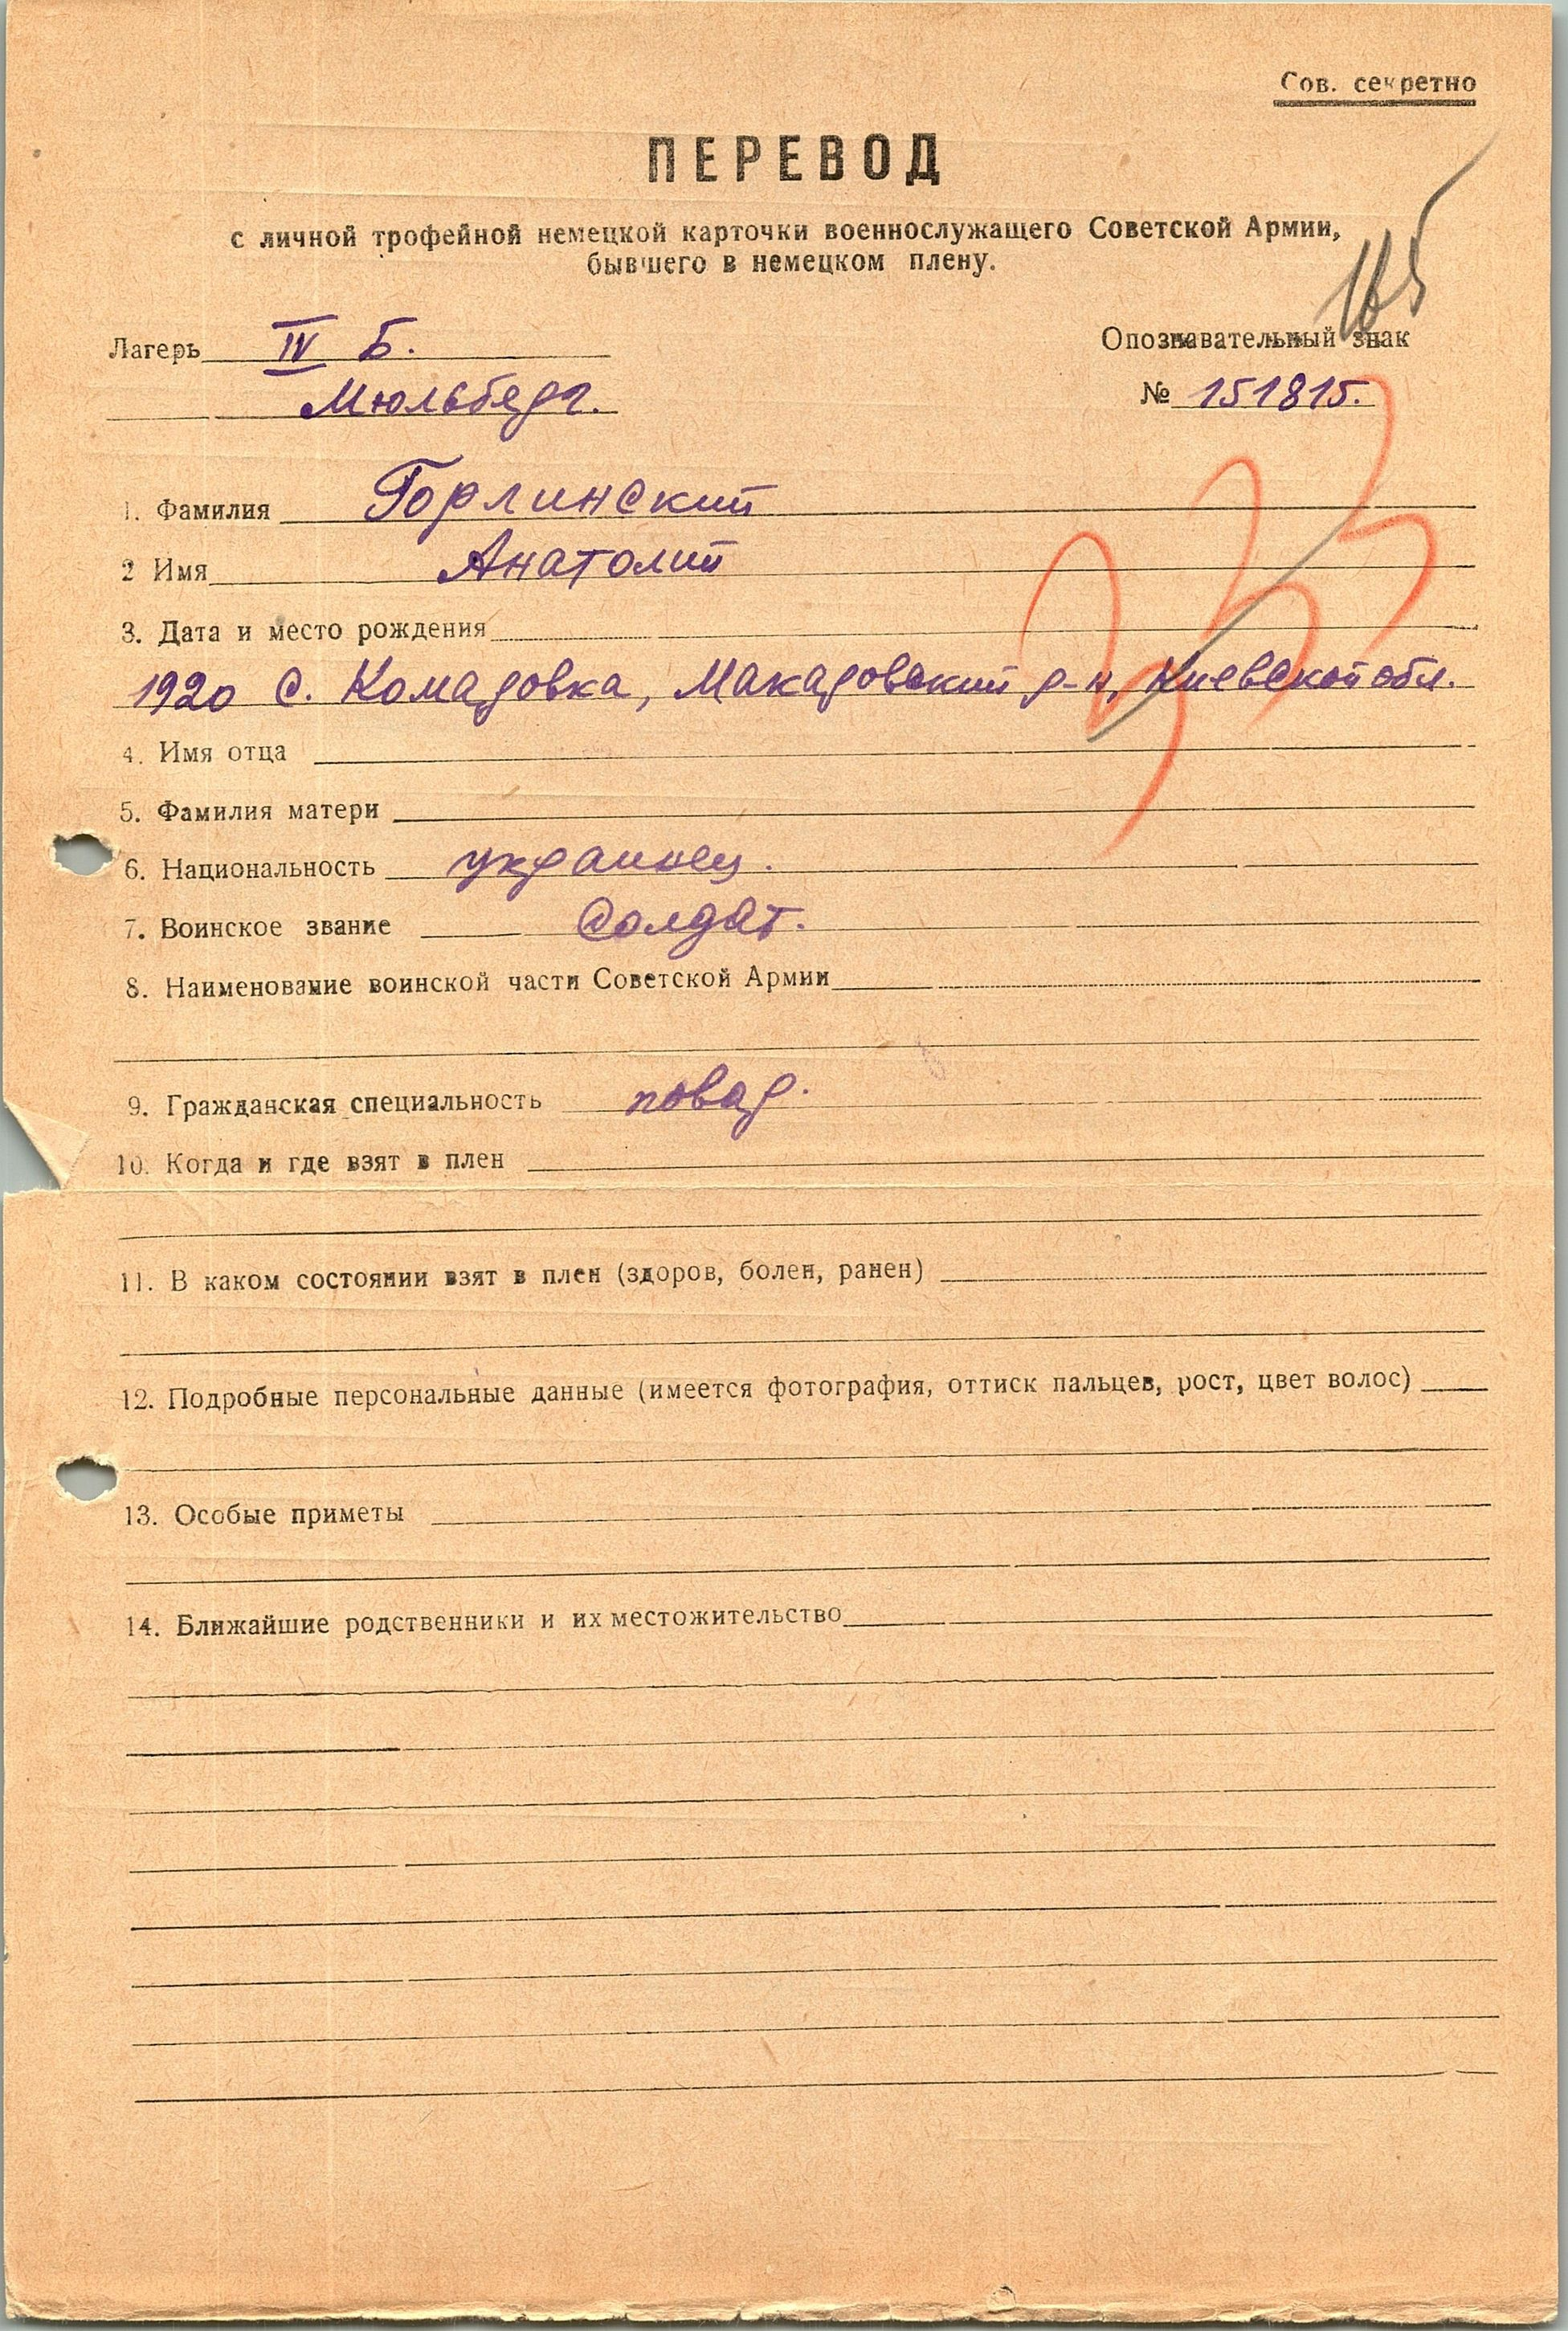 Сов. секретно
ПЕРЕВОД
с личной трофейной немецкой карточки военнослужащего Советской Армии,
бывшего в немецком плену.
165
Лагерь IV Б.
Мюльберг.
Опознавательный знак
№ 151815.
1. Фамилия Горлинский
2 Имя Анатолий
3. Дата и место рождения
1920 с. Комаровка, Макаровский р-н, Киевской обл.
4. Имя отца
5. Фамилия матери
6. Национальность украинец.
7. Воинское звание Солдат.
8. Наименование воинской части Советской Армии
9. Гражданская специальность повар.
10. Когда и где взят в плен
11. В каком состоянии взят в плен (здоров, болен, ранен)
12. Подробные персональные данные (имеется фотография, оттиск пальцев, рост, цвет волос)
13. Особые приметы
14. Ближайшие родственники и их местожительство